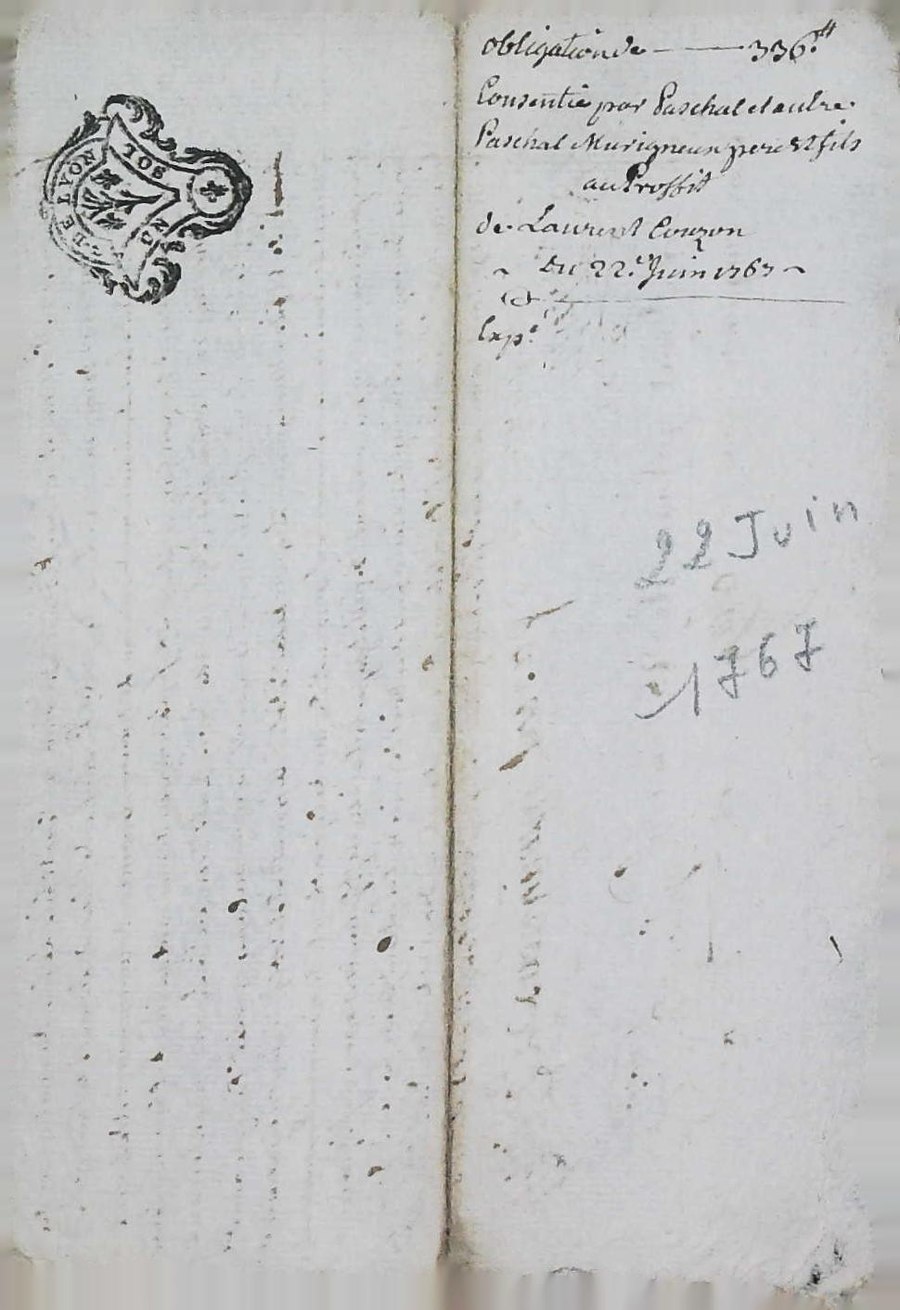 G. DE LYON
CINQ SOLS
obligation de — 336.tt
Consentie par Paschal et autre
Paschal Murigneux pere et fils
au Proffit
de Laurent Couzon
Du 22.e Juin 1767
Exp.e
22 Juin
1767